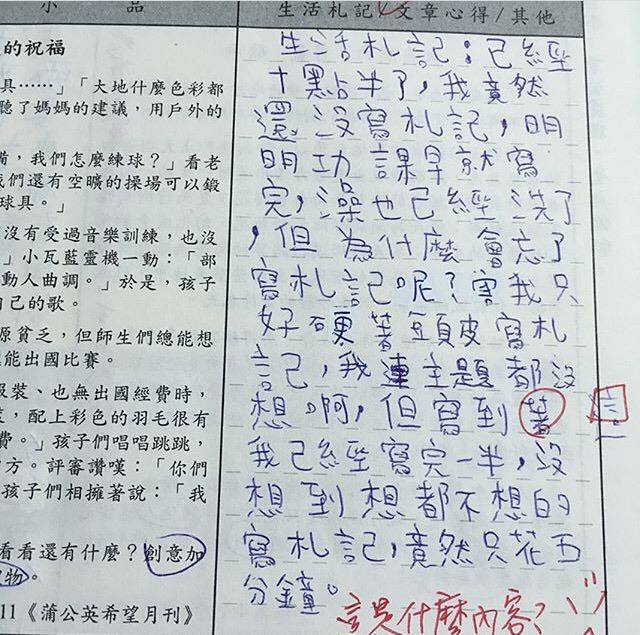 小　品
的祝福
具……」「大地什麼色彩都
聽了媽媽的建議，用戶外的
備，我們怎麼練球？」看老
我們還有空曠的操場可以鍛
球具。」
沒有受過音樂訓練，也沒
」小瓦藍靈機一動：「部
動人曲調。」於是，孩子
自己的歌。
源貧乏，但師生們總能想
能出國比賽。
服裝、也無出國經費時，
，配上彩色的羽毛很有
費。」孩子們唱唱跳跳，
方。評審讚嘆：「你們
孩子們相擁著說：「我
看看還有什麼？創意加
物。
11《蒲公英希望月刊》
生活札記/文章心得/其他
生活札記：已經
十點半了，我竟然
還沒寫札記，明
明功課早就寫
完，澡也已經洗了
，但為什麼會忘了
寫札記呢？害我只
好硬著頭皮寫札
記，我連主題都沒
想啊，但寫到著
這
我已經寫完一半，沒
想到想都不想的
寫札記，竟然只花五
分鐘。
這是什麼內容？